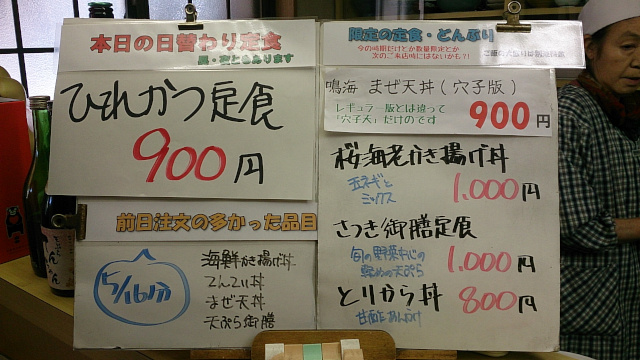 本日の日替わり定食
ひれかつ定食
900円
前日注文の多かった品目
5/16分
海鮮かき揚げ丼
てんてい丼
まぜ天丼
天ぷら御膳
限定の定食・どんぶり
今の時期だけとか数量限定とか
次のご来店時にはないかも?!
鳴海 まぜ天丼(穴子版)
レギュラー版とは違って
「穴子天」だけのです
900円
桜海老かき揚げ丼
玉ネギと
ミックス
1.000円
さつき御膳定食
旬の野菜中心の
軽めの天ぷら
1.000円
とりから丼
800円
甘酢あんかけ